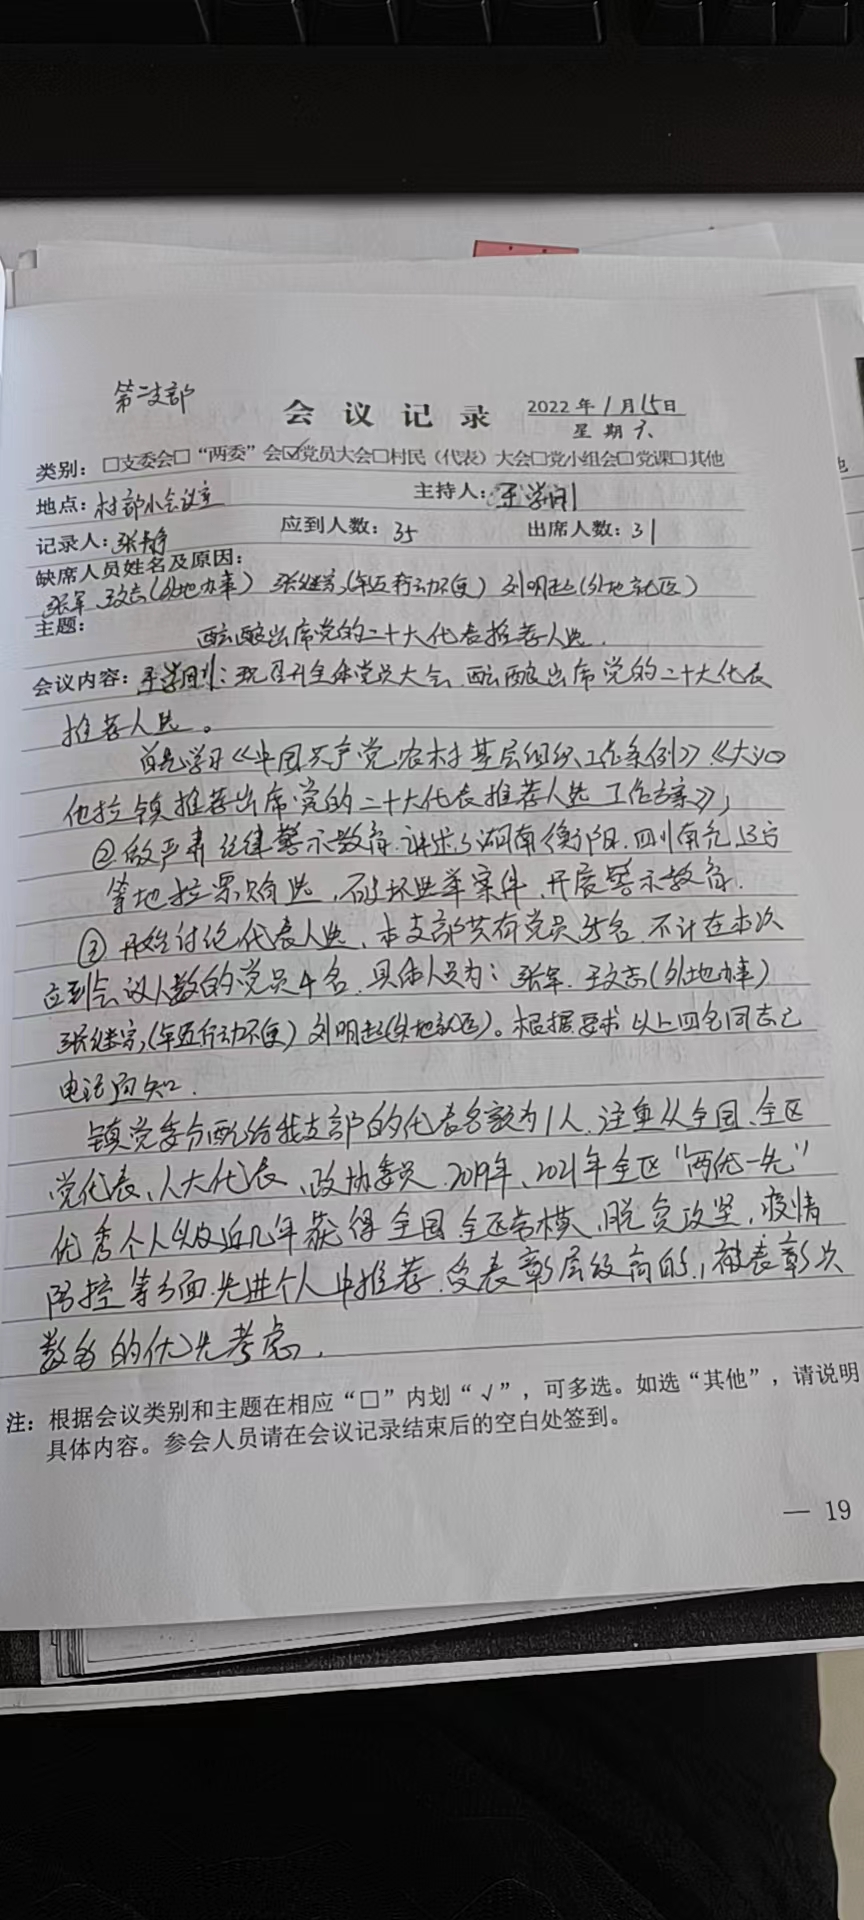 第二支部
会议记录 2022年1月15日
星期六
类别：□支委会□“两委”会☑党员大会□村民（代表）大会□党小组会□党课□其他
地点：村部小会议室 主持人：王学刚
记录人：张静 应到人数：35 出席人数：31
缺席人员姓名及原因：
张军、王文志(外地办事) 张继宗(年迈行动不便) 刘明起(外地就医)
主题：
酝酿出席党的二十大代表推荐人选.
会议内容：王学刚：现召开全体党员大会 酝酿出席党的二十大代表
推荐人选。
首先学习《中国共产党农村基层组织工作条例》《大沁
他拉镇推荐出席党的二十大代表推荐人选工作方案》;
②做严肃纪律警示教育.讲述了湖南衡阳.四川南充,辽宁
等地拉票贿选,破坏选举案件,开展警示教育.
③开始讨论代表人选,本支部共有党员35名 不计在本次
应到会议人数的党员4名.具体人员为:张军.王文志(外地办事)
张继宗,(年迈行动不便) 刘明起(外地就医)。根据要求以上四名同志已
电话通知.
镇党委分配给我支部的代表名额为1人.注重从全国、全区
党代表、人大代表、政协委员.2019年、2021年全区“两优一先”
优秀个人以及近几年获得全国 全区劳模、脱贫攻坚,疫情
防控等方面先进个人中推荐.受表彰层级高的,被表彰次
数多的优先考虑,
注：根据会议类别和主题在相应“□”内划“√”，可多选。如选“其他”，请说明
具体内容。参会人员请在会议记录结束后的空白处签到。
— 19